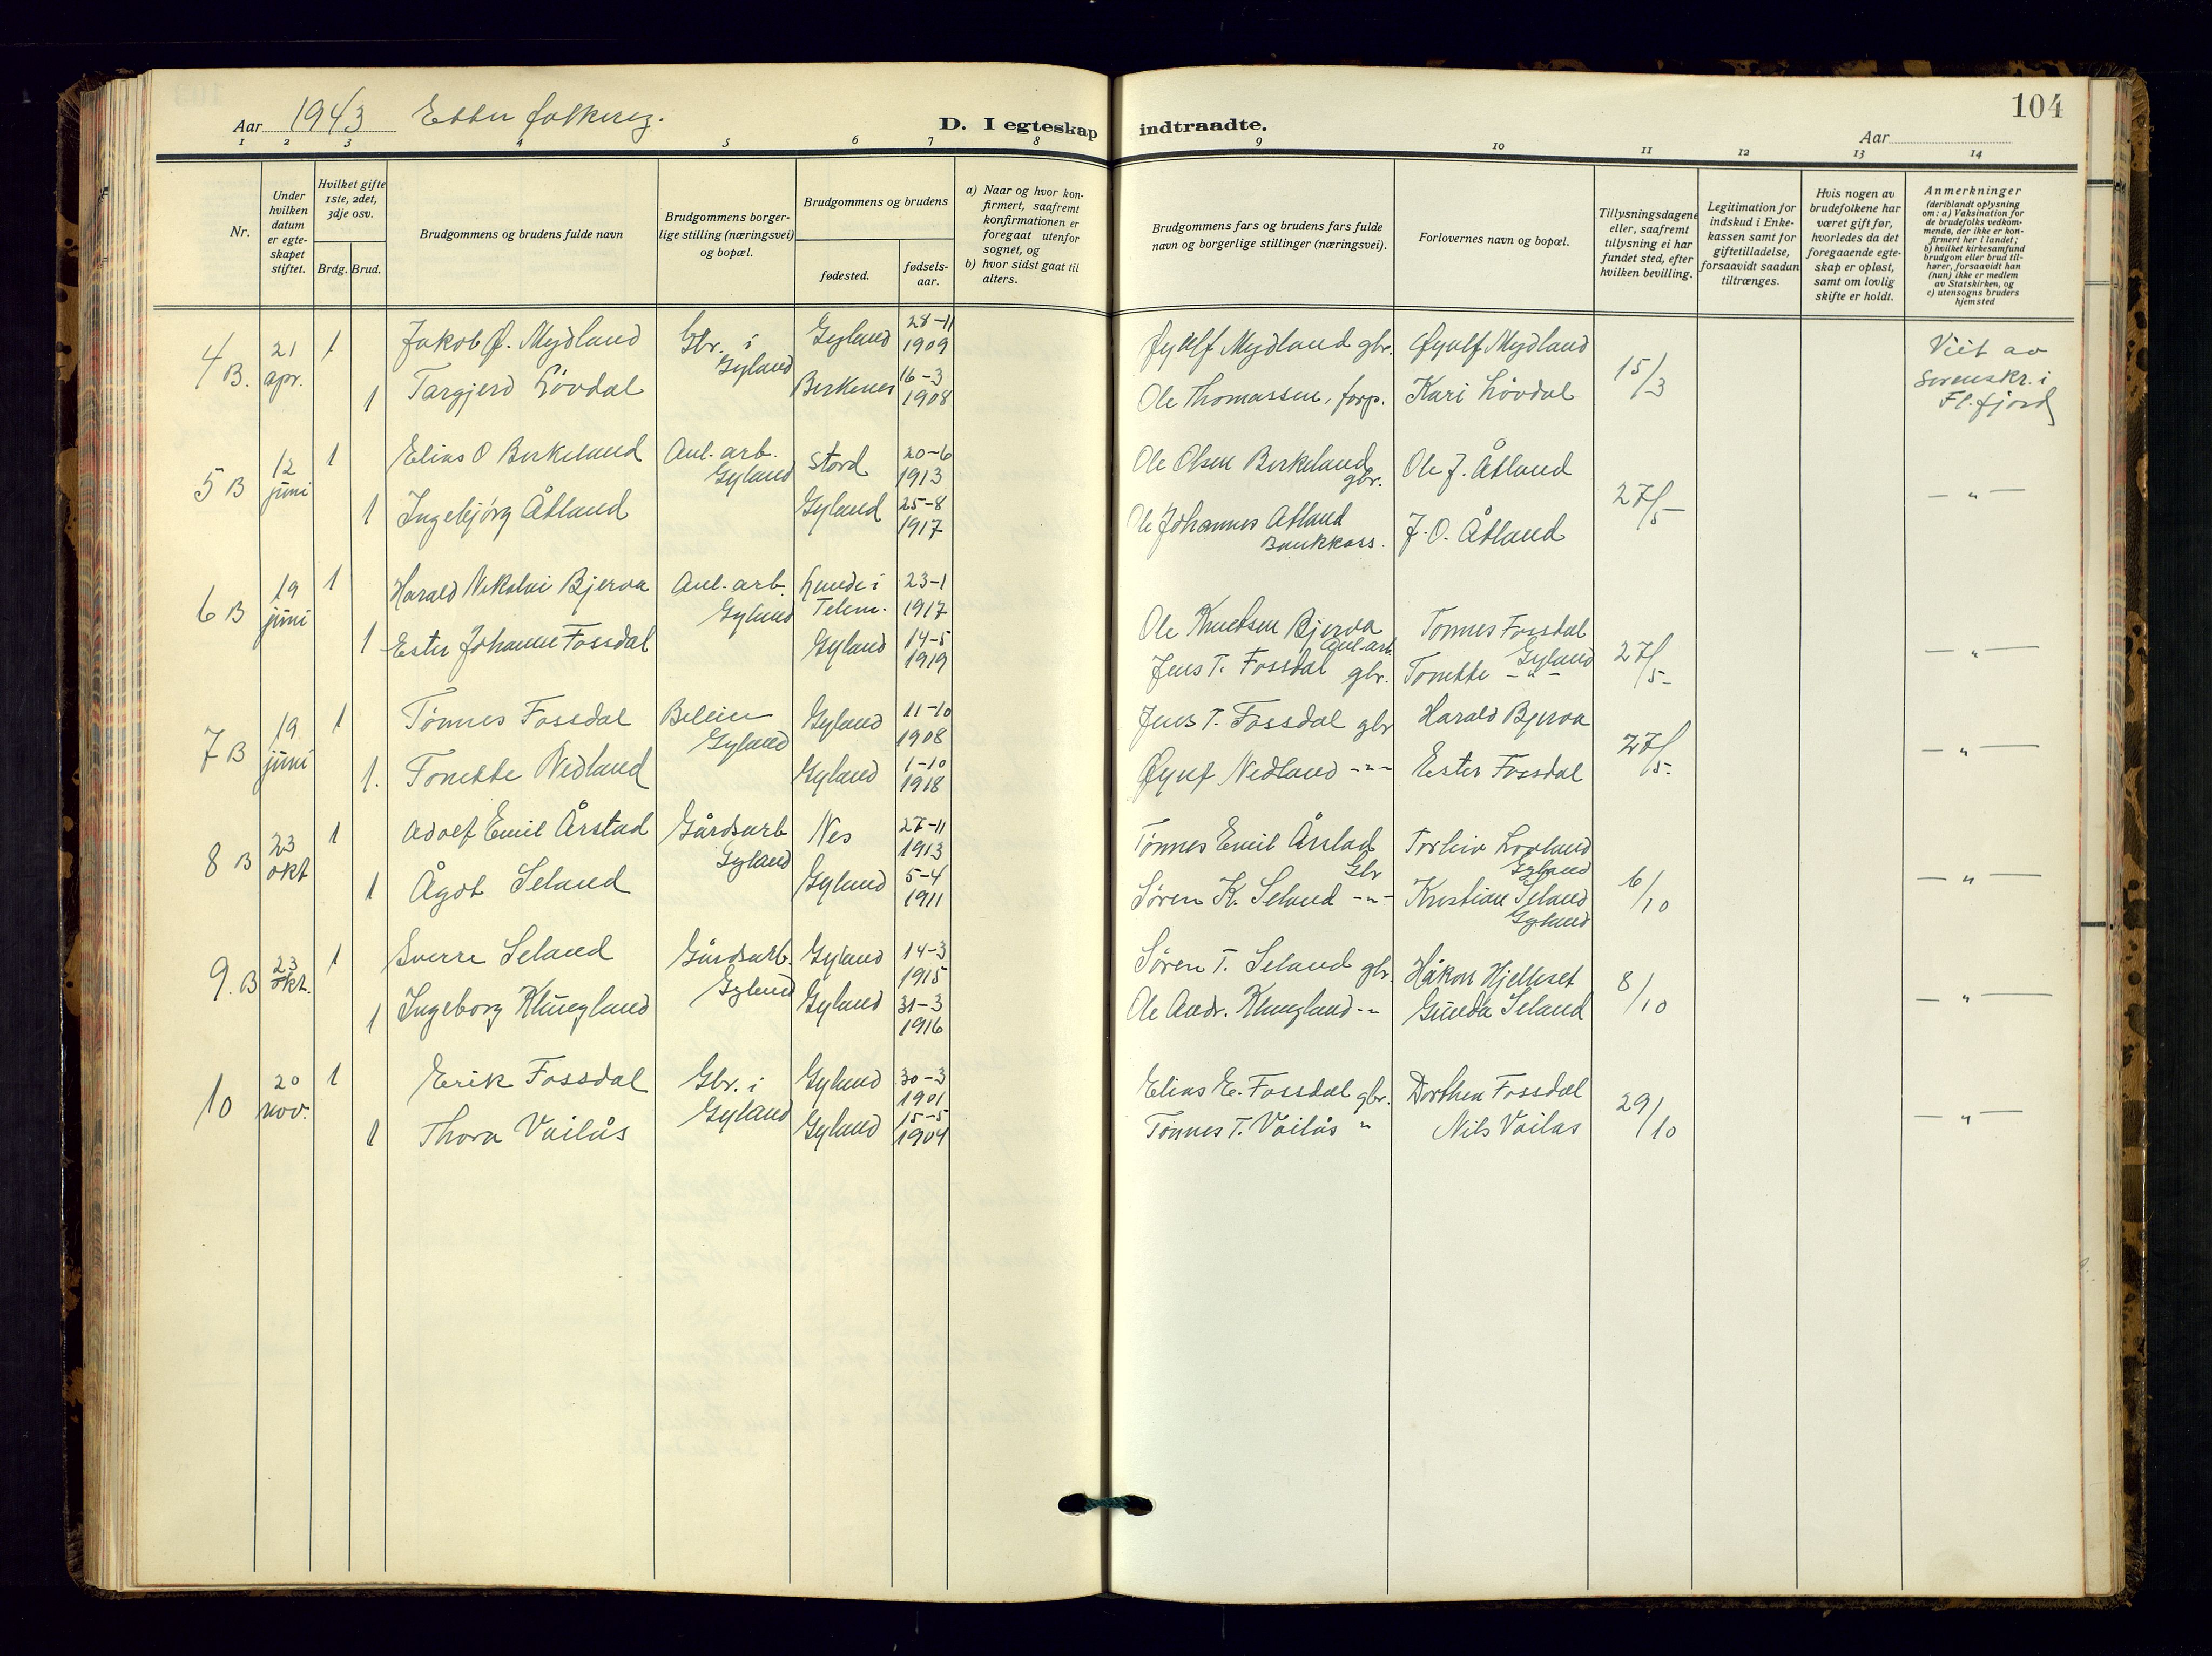 104
Aar 1943 Etter folkereg.
D. I egteskap indtraadte.
Aar
1 2 3 4 5 6 7 8 9 10 11 12 13 14
Nr.
Under
hvilken
datum
er egte-
skapet
stiftet.
Hvilket gifte
1ste, 2det,
3dje osv.
Brdg. Brud.
Brudgommens og brudens fulde navn
Brudgommens borger-
lige stilling (næringsvei)
og bopæl.
Brudgommens og brudens
fødested.
fødsels-
aar.
a) Naar og hvor kon-
firmert, saafremt
konfirmationen er
foregaat utenfor
sognet, og
b) hvor sidst gaat til
alters.
Brudgommens fars og brudens fars fulde
navn og borgerlige stillinger (næringsvei).
Forlovernes navn og bopæl.
Tillysningsdagene
eller, saafremt
tillysning ei har
fundet sted, efter
hvilken bevilling.
Legitimation for
indskud i Enke-
kassen samt for
giftetilladelse,
forsaavidt saadan
tiltrænges.
Hvis nogen av
brudefolkene har
været gift før,
hvorledes da det
foregaaende egte-
skap er opløst,
samt om lovlig
skifte er holdt.
Anmerkninger
(deriblandt oplysning
om: a) Vaksination for
de brudefolks vedkom-
mende, der ikke er kon-
firmert her i landet;
b) hvilket kirkesamfund
brudgom eller brud til-
hører, forsaavidt han
(hun) ikke er medlem
av Statskirken, og
c) utensogns bruders
hjemsted
4 B. 21 apr. 1 Jakob Ø. Mydland Gbr. i Gyland Gyland 28-11 1909 Øyulf Mydland gbr. Øyulf Mydland 15/3 Viet av Sorenskr. i Fl.fjord
1 Targjerd Løvdal Birkenes 16-3 1908 Ole Thomassen, forp. Kari Løvdal
5 B 12 juni 1 Elias O Birkeland Anl. arb. Gyland Stord 20-6 1913 Ole Olsen Birkeland gbr. Ole J. Åtland 27/5 — " —
1 Ingebjørg Åtland Gyland 25-8 1917 Ole Johannes Atland Bankkass. J. O. Åtland
6 B 19 juni 1 Harald Nikolai Bjerva Anl. arb. Gyland Lunde i Telem. 23-1 1917 Ole Knutsen Bjerva Anl. arb. Tønnes Fossdal Gyland 27/5 — " —
1 Ester Johanne Fossdal Gyland 14-5 1919 Jens T. Fossdal gbr. Tomette — " —
7 B 19 juni 1 Tønnes Fossdal Gyland Gyland 11-10 1908 Jens T. Fossdal gbr Harald Bjerva 27/5. — " —
1. Tomette Nedland Gyland 1-10 1918 Øyulf Nedland -"- Ester Fossdal
8 B 23 okt 1 Adolf Emil Årstad Gårdsarb Gyland Nes 27-11 1913 Tønnes Emil Årstad Gbr Torleiv Lovland Gyland 6/10 — " —
1 Ågot Seland Gyland 5-4 1911 Søren K. Seland -"- Kristian Seland Gyland
9. B 23 okt. 1 Sverre Seland Gårdsarb. Gyland Gyland 14-3 1915 Søren T. Seland gbr. Håkon Hjelleset 8/10 — " —
1 Ingeborg Klungland Gyland 31-3 1916 Ole Andr. Klungland -"- Gunda Seland
10 20 nov. 1 Erik Fossdal Gbr. i Gyland Gyland 30-3 1901 Elias E. Fossdal gbr. Dorthea Fossdal 29/10 — " —
1 Thora Vailås Gyland 15-5 1904 Tønnes T. Vailås " Nils Vailas